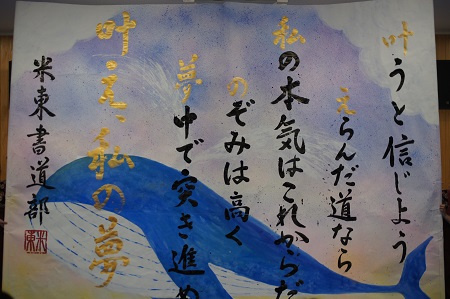 叶うと信じよう
えらんだ道なら
私の本気はこれからだ
のぞみは高く
夢中で突き進め
叶え、私の夢
米東書道部
米東